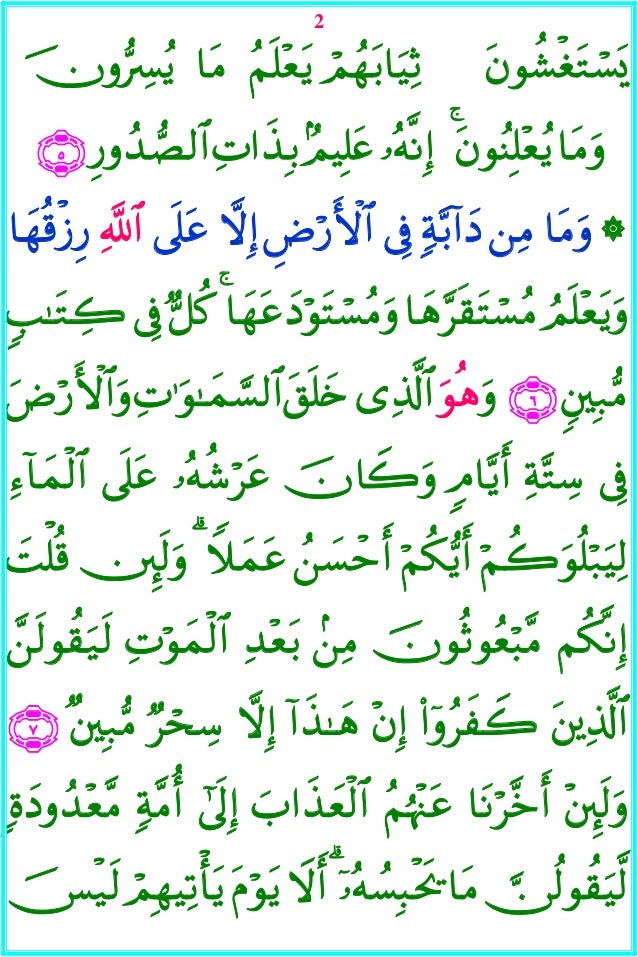 2
يَسْتَغْشُونَ ثِيَابَهُمْ يَعْلَمُ مَا يُسِرُّونَ
وَمَا يُعْلِنُونَ ۚ إِنَّهُۥ عَلِيمٌۢ بِذَاتِ ٱلصُّدُورِ ٥
۞ وَمَا مِن دَآبَّةٍ فِى ٱلْأَرْضِ إِلَّا عَلَى ٱللَّهِ رِزْقُهَا
وَيَعْلَمُ مُسْتَقَرَّهَا وَمُسْتَوْدَعَهَا ۚ كُلٌّ فِى كِتَـٰبٍ
مُّبِينٍ ٦ وَهُوَ ٱلَّذِى خَلَقَ ٱلسَّمَـٰوَٰتِ وَٱلْأَرْضَ
فِى سِتَّةِ أَيَّامٍ وَكَانَ عَرْشُهُۥ عَلَى ٱلْمَآءِ
لِيَبْلُوَكُمْ أَيُّكُمْ أَحْسَنُ عَمَلًا ۗ وَلَئِن قُلْتَ
إِنَّكُم مَّبْعُوثُونَ مِنۢ بَعْدِ ٱلْمَوْتِ لَيَقُولَنَّ
ٱلَّذِينَ كَفَرُوٓا۟ إِنْ هَـٰذَآ إِلَّا سِحْرٌ مُّبِينٌ ٧
وَلَئِنْ أَخَّرْنَا عَنْهُمُ ٱلْعَذَابَ إِلَىٰٓ أُمَّةٍ مَّعْدُودَةٍ
لَّيَقُولُنَّ مَا يَحْبِسُهُۥٓ ۗ أَلَا يَوْمَ يَأْتِيهِمْ لَيْسَ